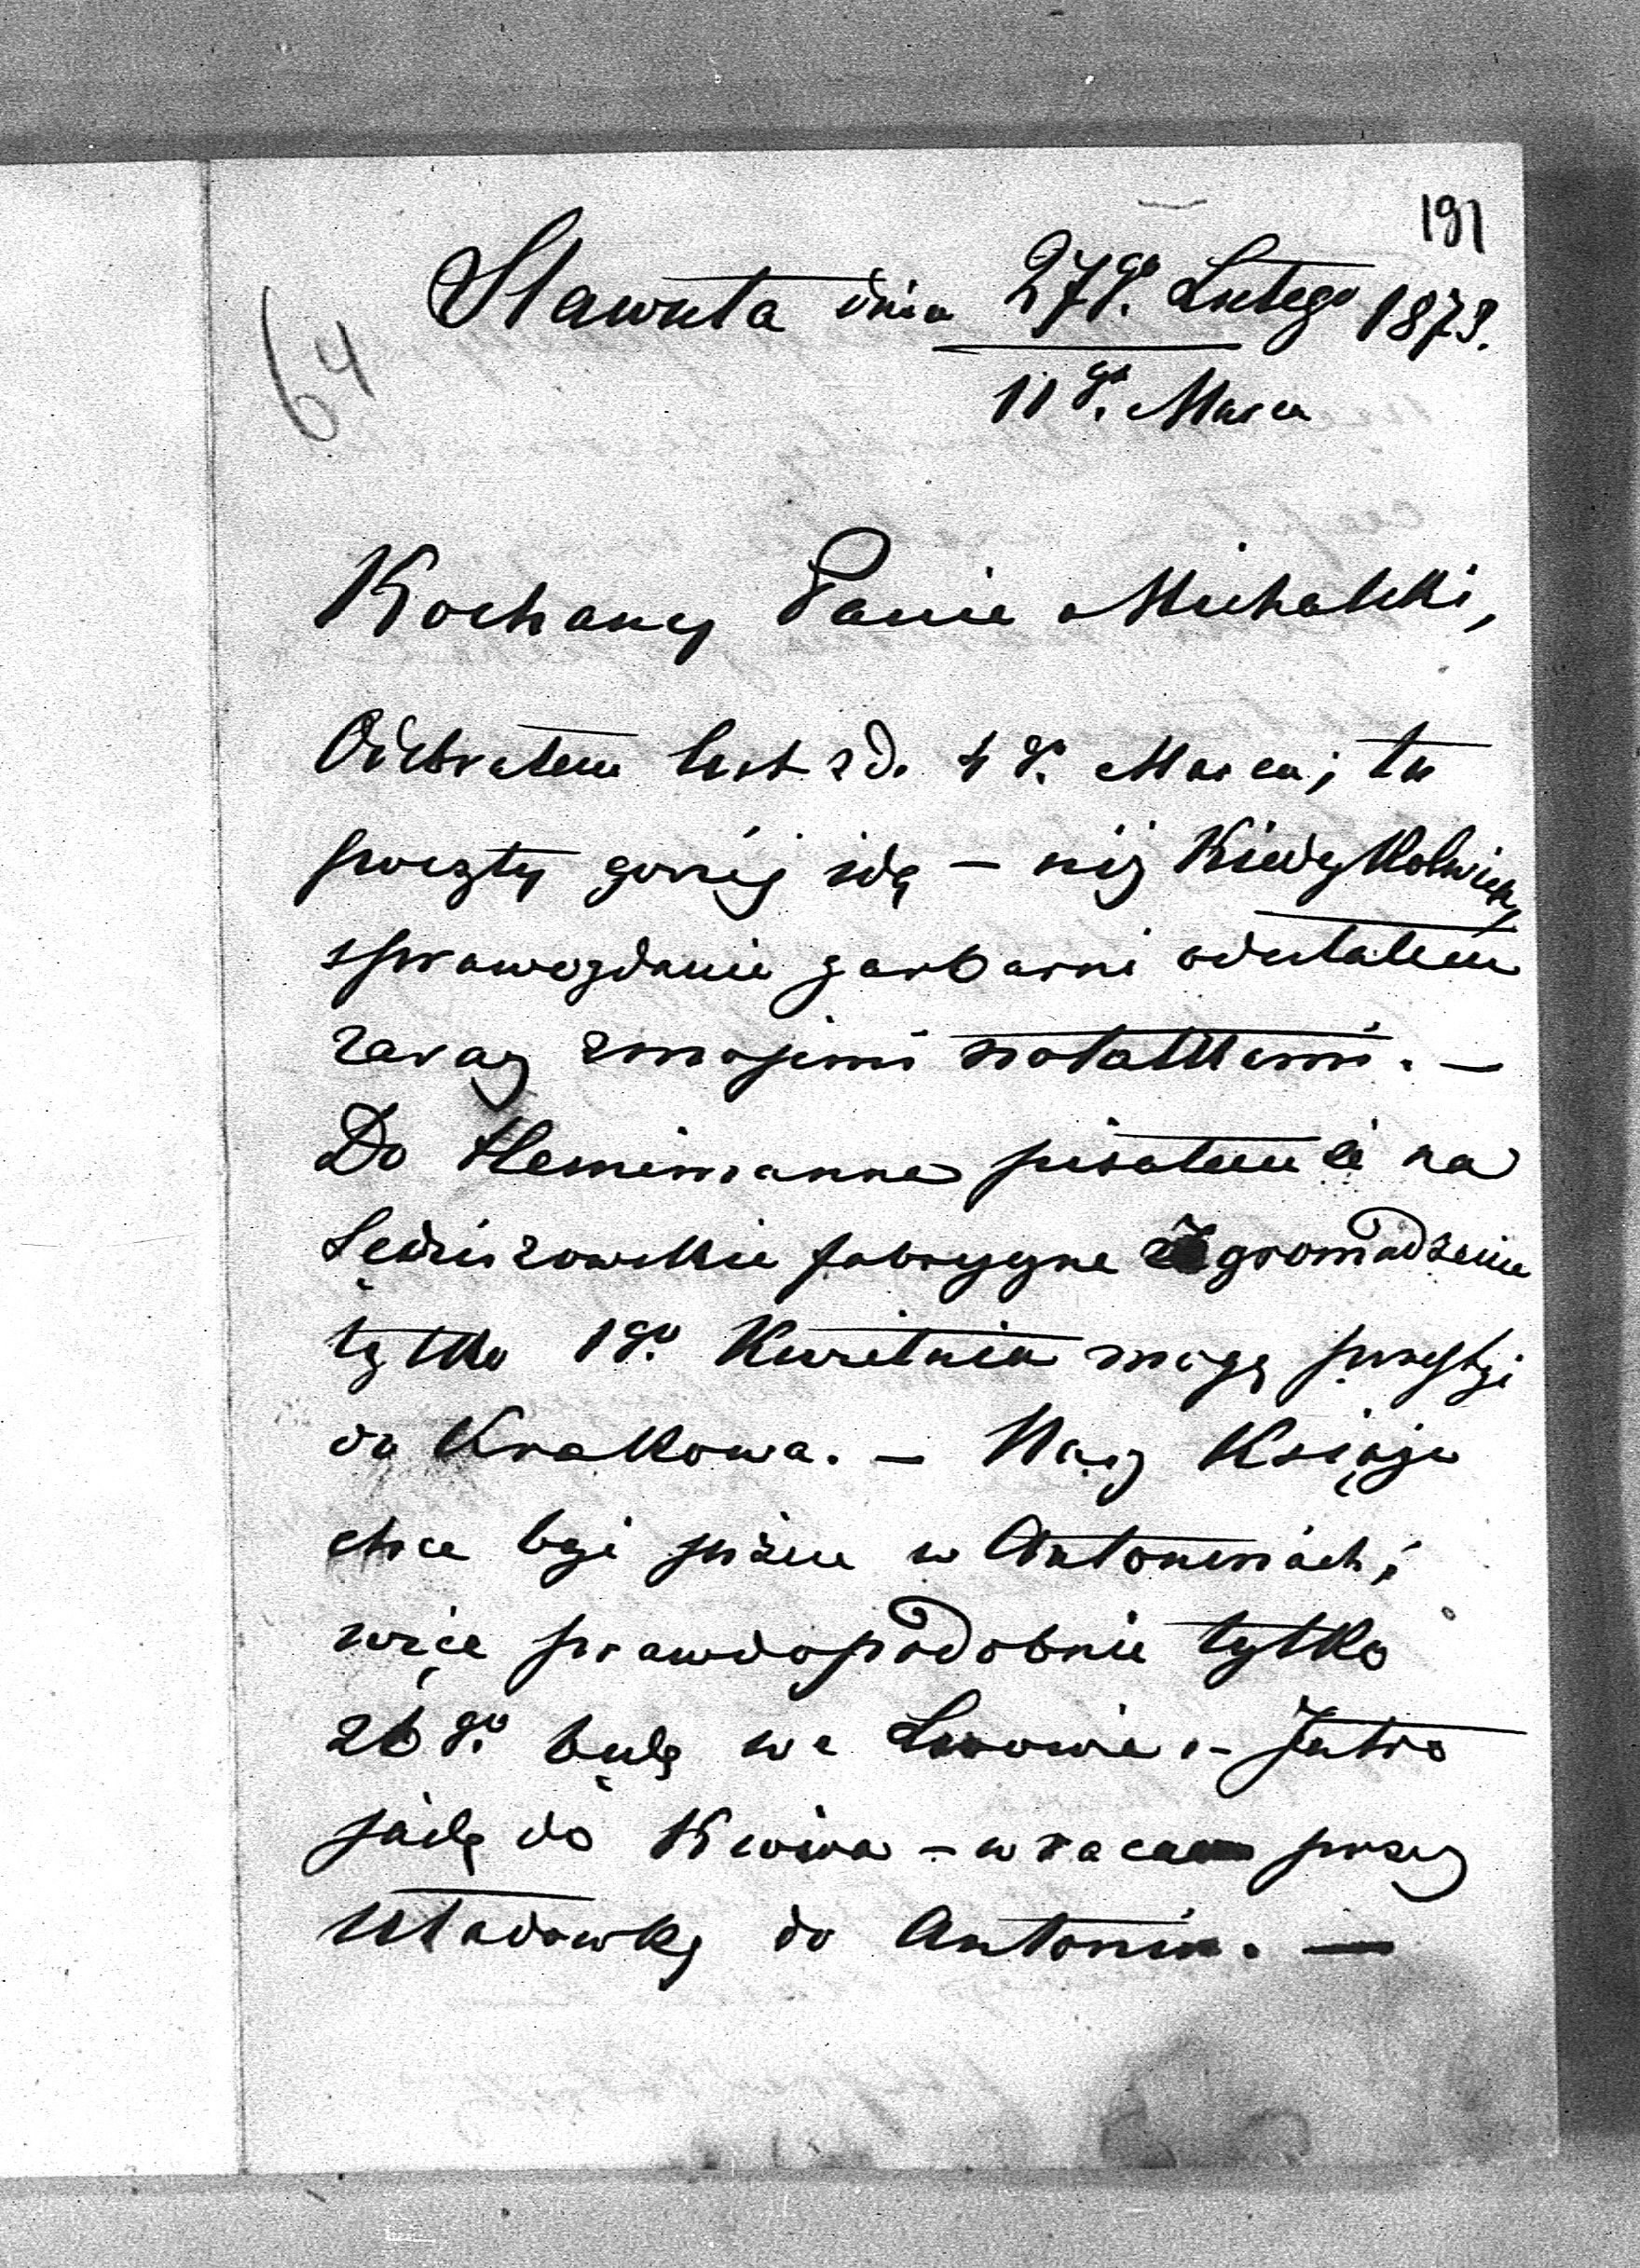 191
64
Sławuta dnia 27go. Lutego 1873.
11go. Marca
Kochany Panie Michalski,
Odebrałem list z d. 4go. Marca; tu
poczty gorzéj idą – niż kiedykolwiek,
sprawozdanie garbarni odesłałem
zaraz z mojemi notatkami. –
Do Hennimanna pisałem iż na
Sędziszowskie fabryczne zgromadzenie
tylko 1go. Kwietnia mogę przybyć
do Krakowa. – Nasz Książe
chce być przed w Antoninach;
więc prawdopodobnie tylko
26go. będę we Lwowie. – Jutro
jadę do Kijowa – wracam przez
Uładówkę do Antonin. –